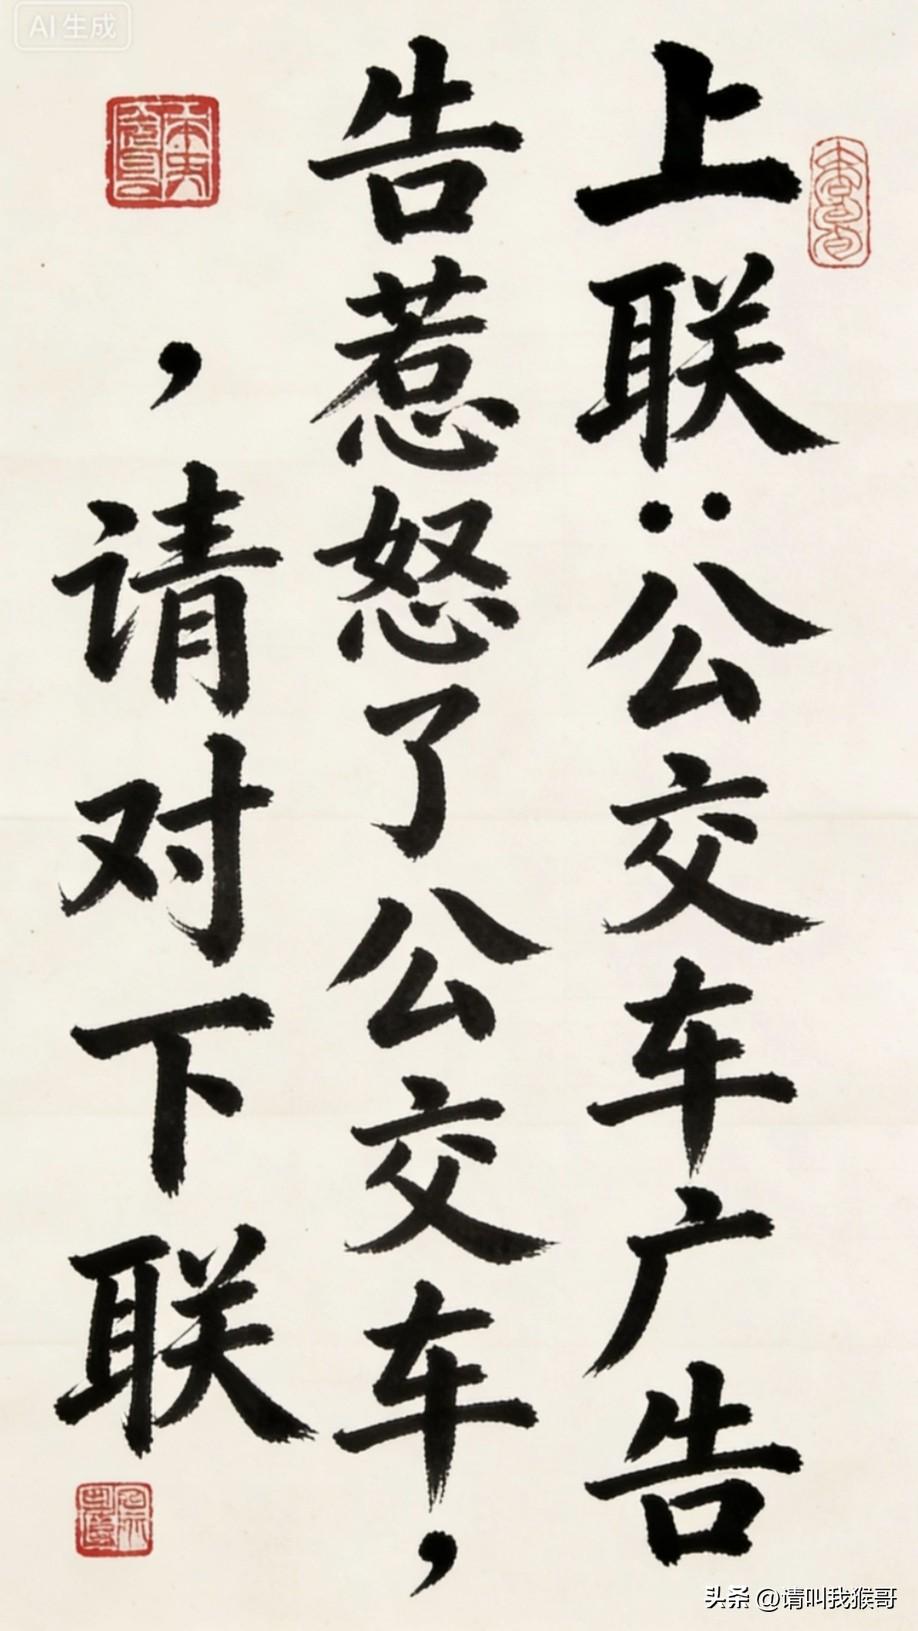 上联：公交车广告
告惹怒了公交车，
，请对下联
AI生成
头条 @请叫我猴哥